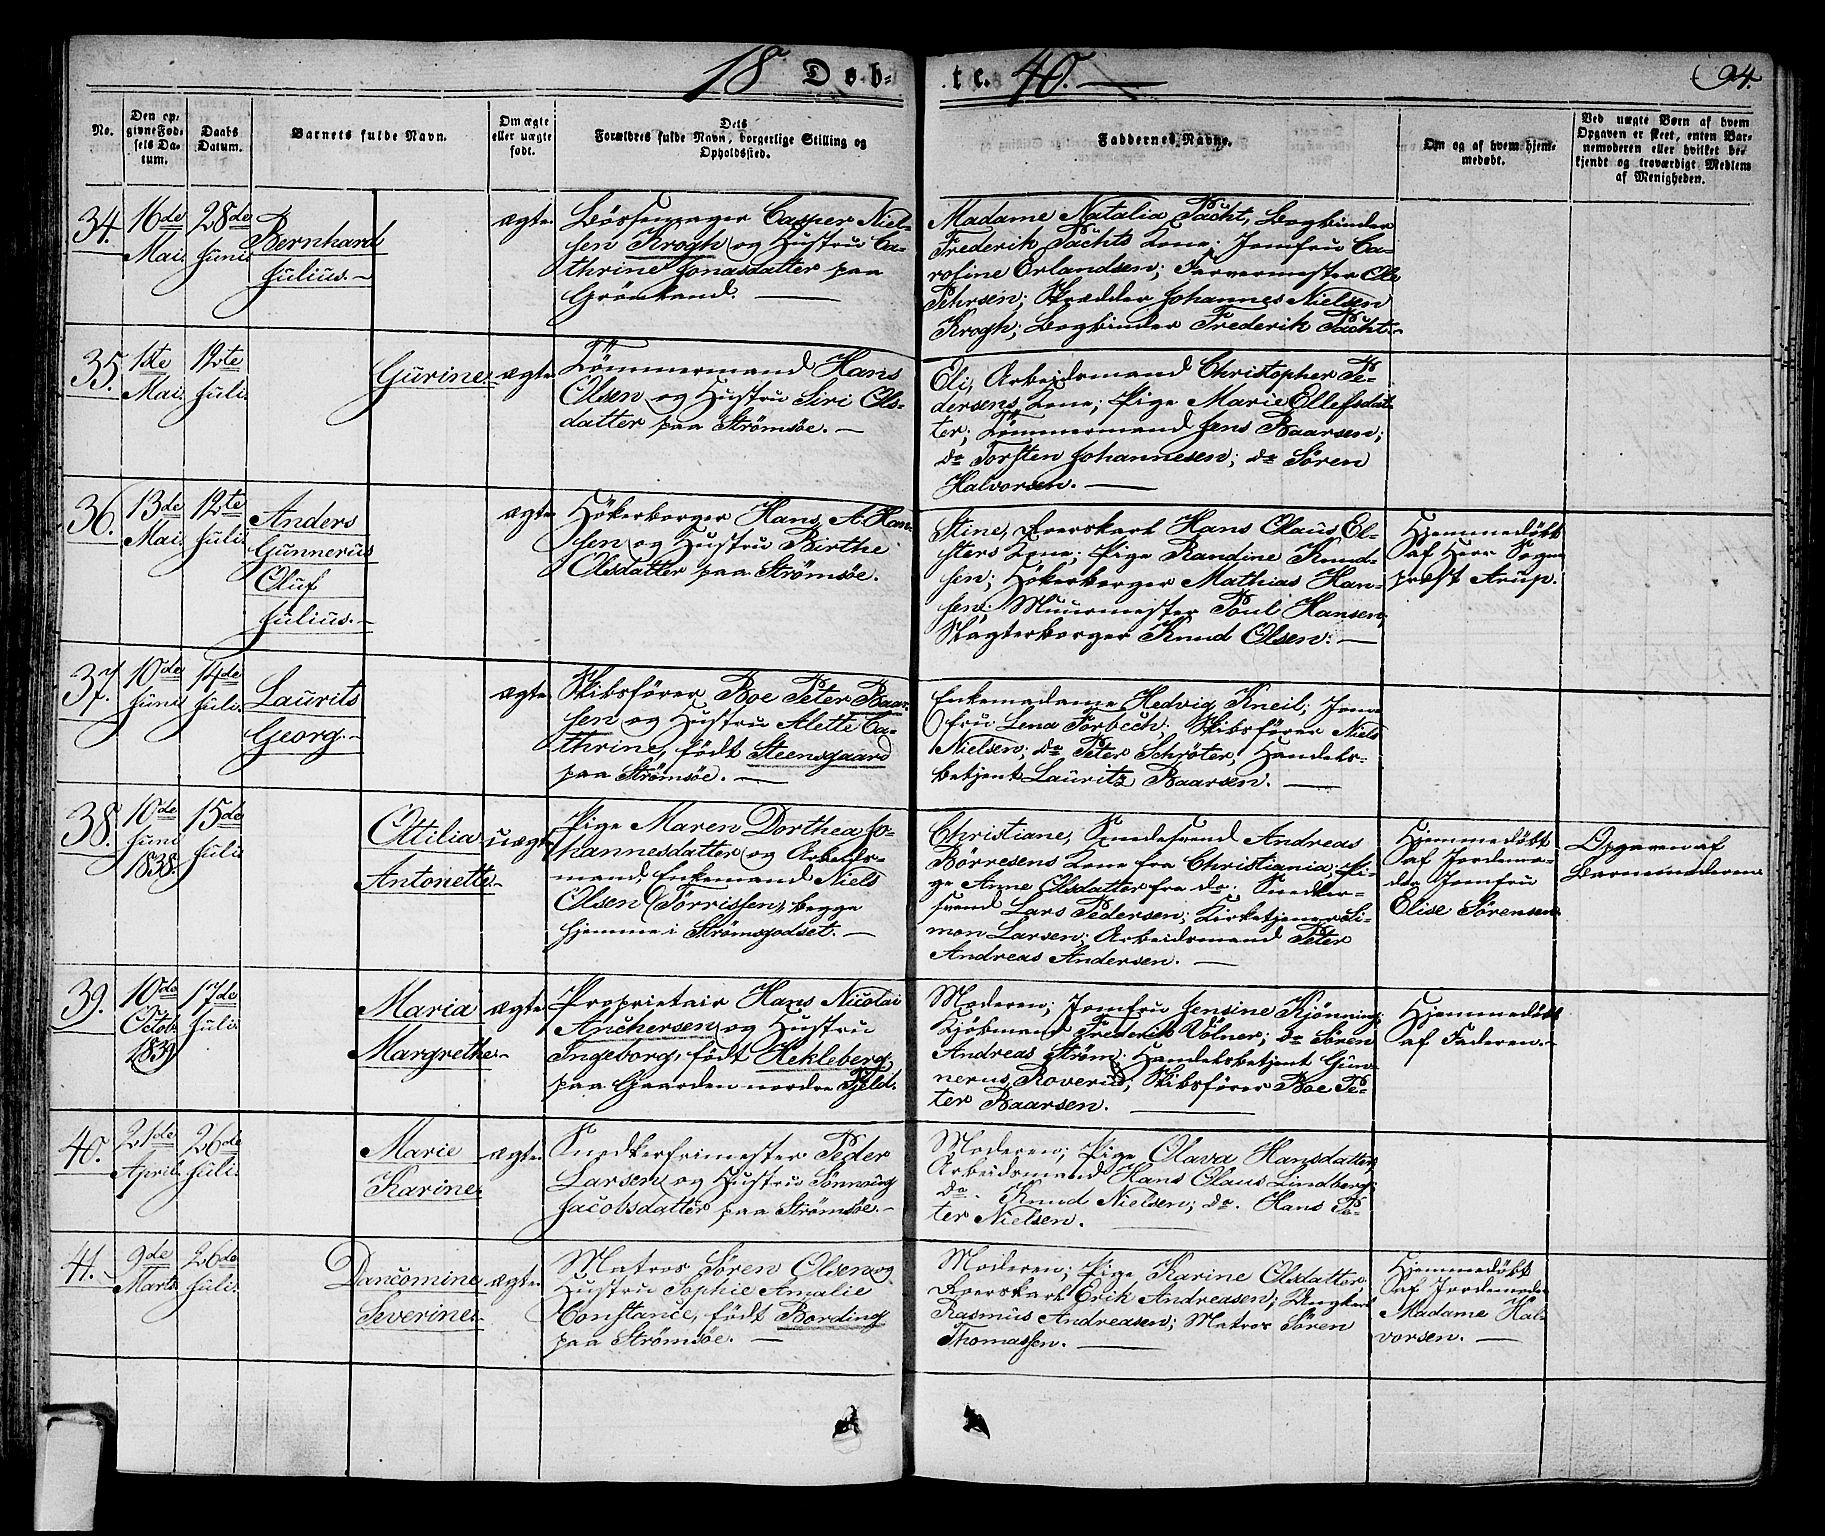 18 Døb-
te. 40.
94.
No.
Den op-
givne Fød-
sels Da-
tum.
Daabs
Datum.
Barnets fulde Navn.
Om ægte
eller uægte
født.
Dets
Forældres fulde Navn, borgerlige Stilling og
Opholdssted.
Faddernes Navne.
Om og af hvem hjem-
medøbt.
Ved uægte Børn af hvem
Opgaven er skeet, enten Bar-
nemoderen eller hvilket be-
kjendt og troværdigt Medlem
af Menigheden.
34.
16de
Mai.
28de
Juni
Bernhard
Julius.
ægte
Bössemager Casper Niel-
sen Krogh og Hustru Ca-
thrine Jonasdatter paa
Grönland.
Madame Natalia Pacht, Bogbinder
Frederik Pachts Kone; Jomfru Ca-
roline Erlandsen; Farvermester Ole
Pehrsen; Skrædder Johannes Nielsen
Krogh; Bogbinder Frederik Pacht.
35.
1ste
Mai.
12te
Juli.
Gurine.
ægte
Tömmermand Hans
Olsen og Hustru Siri Ols-
datter paa Strömsöe.
Eli, Arbeidsmand Christopher Pe-
dersens Kone; Pige Marie Ellefsdat-
ter; Tömmermand Jens Baarsen;
do Torsten Johannesen; do Sören
Halvorsen.
36.
13de
Mai.
12te
Juli.
Anders
Gunnerus
Oluf
Julius.
ægte
Hökerborger Hans A. Han-
sen og Hustru Birthe
Olsdatter paa Strömsöe.
Stine, Hans Olaus El-
sters Kone; Pige Randine Knud-
sen; Hökerborger Mathias Han-
sen; Muurmester Poul Hansen;
Slagterborger Knud Olsen.
Hjemmedöbt
af Herr Sogne-
præst Arup.
37.
10de
Juni
14de
Juli.
Laurits
Georg.
ægte
Skibsförer Boe Peter Baar-
sen og Hustru Alette Ca-
thrine, født Steensgaard
paa Strömsöe.
Enkemadame Hedvig Kneil; Jom-
fru Lena Forbech; Skibsförer Niels
Nielsen; do Peter Schröter; Handels-
betjent Lauritz Baarsen.
38.
10de
Juni
1838.
15de
Juli
Ottilia
Antonette.
uægte
Pige Maren Dorthea Jo-
hannesdatter og Arbeids-
mand, Enkemand Niels
Olsen (Torrissen), begge
hjemme i Strömsgodset.
Christiane, Snedkersvend Andreas
Börresens Kone fra Christiania; Pi-
ge Anne Olsdatter fra do. Snedker-
svend Lars Pedersen; Kirketjener Si-
mon Larsen; Arbeidsmand Peter
Andreas Andersen.
Hjemmedöbt
af Jordemo-
der Jomfru
Elise Sörensen.
Opgaven af
Barnemoderen
39.
10de
Octob.
1839
17de
Juli.
Maria
Margrethe.
ægte
Proprietair Hans Nicolai
Anchersen og Hustru
Ingeborg, født Hekleberg
paa Gaarden nordre Fjeld.
Moderen; Jomfru Jensine Kjönning;
Kjöbmand Frederik Völner; do Sören
Andreas Ström; Handelsbetjent Gun-
nerus Roverud; Skibsförer Boe Pe-
ter Baarsen.
Hjemmedöbt
af Faderen.
40.
21de
April.
26de
Juli.
Marie
Karine.
ægte.
Snedkerfrimester Peder
Larsen og Hustru Sönnoug
Jacobsdatter paa Strömsöe.
Moderen; Pige Olava Hansdatter;
Arbeidsmand Hans Olaus Lindberg;
do. Knud Nielsen; do. Hans Pe-
ter Nielsen.
41.
9de
Marts
26de
Juli.
Dancomine
Severine.
ægte.
Matros Sören Olsen og
Hustru Sophie Amalie
Constance, født Bording
paa Strömsöe.
Moderen; Pige Karine Olsdatter;
Erik Andreasen; Ungkarl
Rasmus Andreasen; Matros Sören
Thomassen.
Hjemmedöbt
af Jordemoder
Madame Hal-
vorsen.